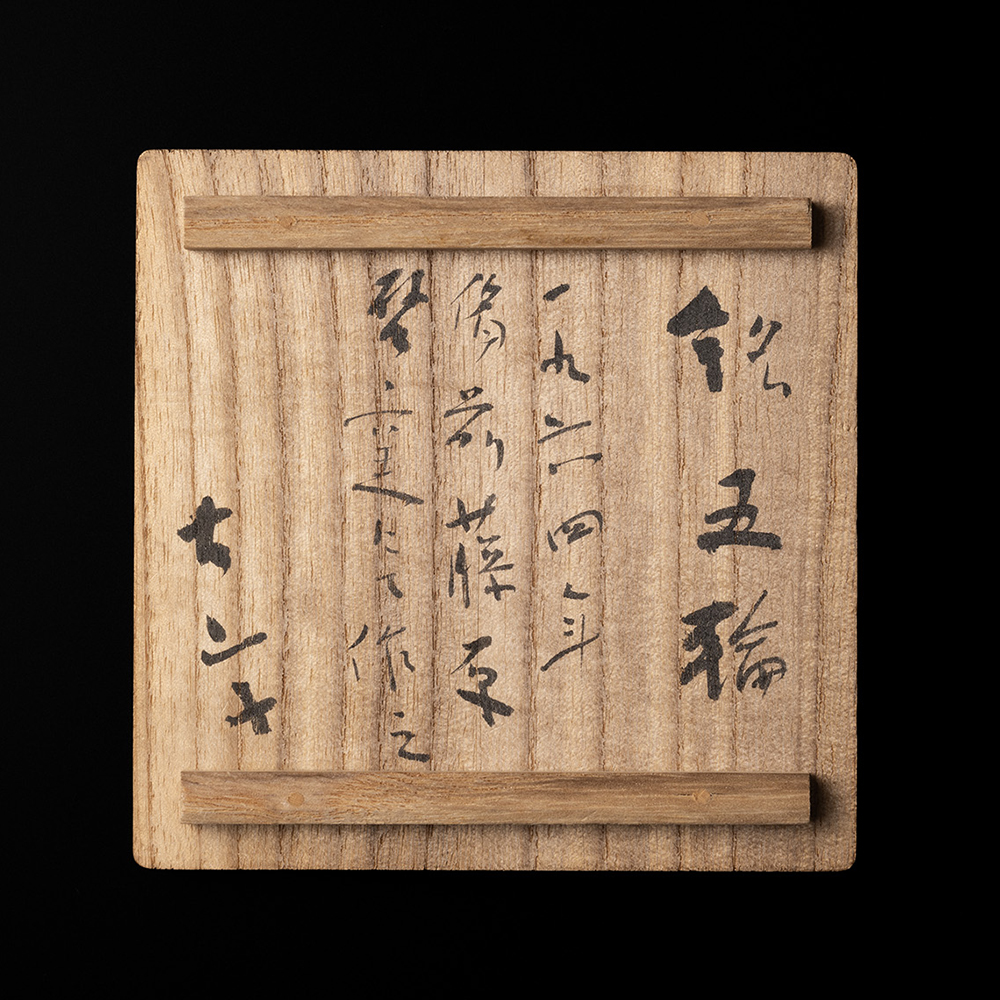 銘 五輪
一九六四年
備前藤原
啓窯にて作之
古山子